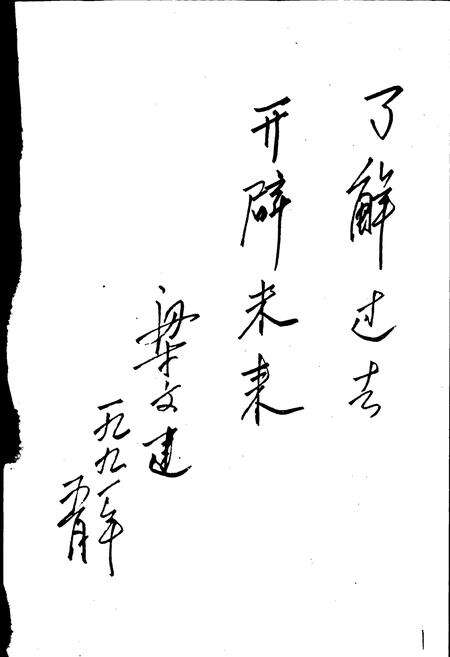 了解过去
开辟未来
梁文建
一九九一年
五月
1